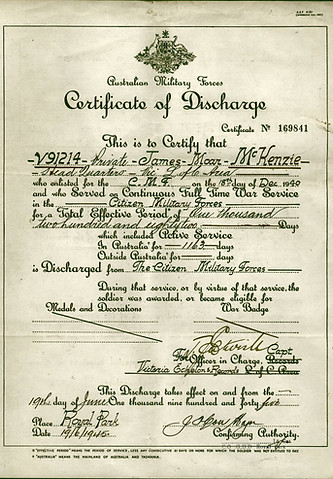 Australian Military Forces
Certificate of Discharge
Certificate No 169841
This is to Certify that
V91214 - Private - James - Moar - McKenzie
Head Quarters - Vic L of C Area
who enlisted for the C.M.F. on the 18th day of Dec 1940
and who Served on Continuous Full Time War Service
in the Citizen Military Forces
for a Total Effective Period of One thousand
two hundred and eighty two Days
which included Active Service
In Australia* for 1163 days
Outside Australia* for days
is Discharged from The Citizen Military Forces
During that service, or by virtue of that service, the
soldier was awarded, or became eligible for
Medals and Decorations War Badge
Capt
For Officer in Charge, Records
Victoria Echelon & Records L of C Area
This Discharge takes effect on and from the
19th day of June One thousand nine hundred and forty five
Place Royal Park
Date 19/6/1945 Confirming Authority.
* "EFFECTIVE PERIOD" MEANS THE PERIOD OF SERVICE, LESS ANY CONSECUTIVE 21 DAYS OR MORE FOR WHICH THE SOLDIER WAS NOT ENTITLED TO PAY
* "AUSTRALIA" MEANS THE MAINLAND OF AUSTRALIA AND TASMANIA.